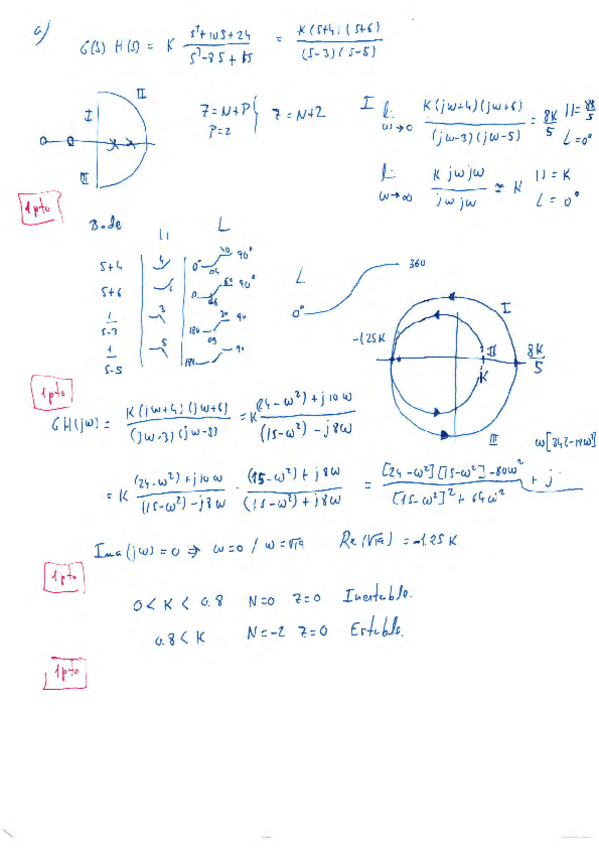 a)
G(s) H(s) = K (s²+10s+24)/(s²-8s+15) = K(s+4)(s+6)/((s-3)(s-5))
I
II
III
Z=N+P
P=2
} Z=N+2
I lim ω→0 K(jω+4)(jω+6)/((jω-3)(jω-5)) = 8K/5 | |=8K/5
∠=0°
lim ω→∞ K jω jω/(jω jω) = K | |=K
∠=0°
1 pto
Bode
| | ∠
s+4 4 0° 04 90°
s+6 6 0 90°
1/(s-3) 3 180 90
1/(s-5) 5 90
∠ 0° 360
-1.25K I II III K 8K/5
1 pto
GH(jω) = K(jω+4)(jω+6)/((jω-3)(jω-5)) = K ((24-ω²)+j10ω)/((15-ω²)-j8ω)
ω[342-18ω²]
= K ((24-ω²)+j10ω)/((15-ω²)-j8ω) · ((15-ω²)+j8ω)/((15-ω²)+j8ω) = ([24-ω²][15-ω²]-80ω²)/([15-ω²]²+64ω²) + j
Ima(jω)=0 ⇒ ω=0 / ω=√19 Re(√19) = -1.25K
1 pto
0<K<0.8 N=0 Z=0 Inestable.
0.8<K N=-2 Z=0 Estable.
1 pto